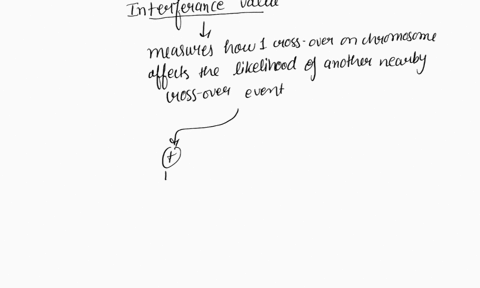 Interferance value
measures how 1 cross-over on chromosome
affects the likelihood of another nearby
cross-over event
+